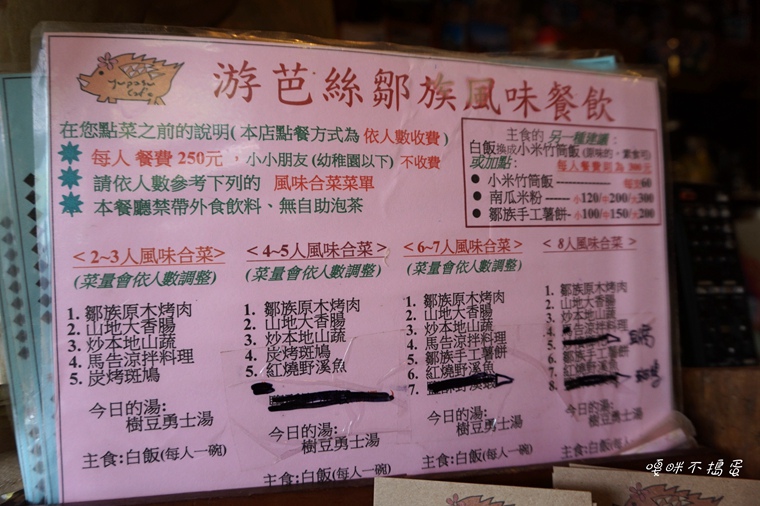 游芭絲鄒族風味餐飲
在您點菜之前的說明(本店點餐方式為 依人數收費)
每人 餐費 250元 ，小小朋友(幼稚園以下) 不收費
請依人數參考下列的 風味合菜菜單
本餐廳禁帶外食飲料、無自助泡茶
主食的 另一種建議:
白飯換成小米竹筒飯 (原味的。素食可)
或加點: 每人餐費則為 300元
小米竹筒飯 ------------ 每支60
南瓜米粉 -------小120/中200/大300
鄒族手工薯餅-小100/中150/大200
< 2~3人風味合菜>
(菜量會依人數調整)
1. 鄒族原木烤肉
2. 山地大香腸
3. 炒本地山蔬
4. 馬告涼拌料理
5. 炭烤斑鳩
今日的湯:
樹豆勇士湯
主食:白飯(每人一碗)
< 4~5人風味合菜 >
(菜量會依人數調整)
1. 鄒族原木烤肉
2. 山地大香腸
3. 炒本地山蔬
4. 炭烤斑鳩
5. 紅燒野溪魚
今日的湯:
樹豆勇士湯
主食:白飯(每人一碗)
< 6~7人風味合菜 >
(菜量會依人數調整)
1. 鄒族原木烤肉
2. 山地大香腸
3. 炒本地山蔬
4. 馬告涼拌料理
5. 鄒族手工薯餅
6. 紅燒野溪魚
7.
今日的湯:
樹豆勇士湯
主食:白飯(每人一碗)
< 8人風味合菜 >
1. 鄒族原木烤肉
2. 山地大香腸
3. 炒本地山蔬
4. 馬告涼拌料理
5.
6. 鄒族手工薯餅
7. 紅燒野溪魚
8.
今日的湯:
樹豆勇士湯
主食:白飯(每人一碗)
嘎咪不搗蛋